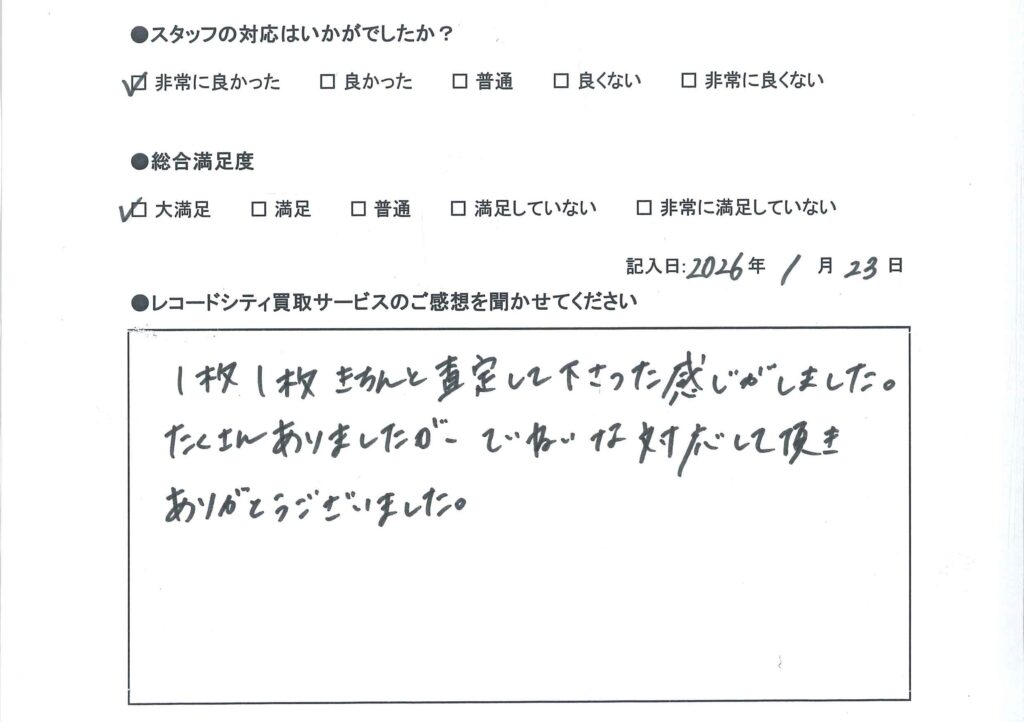 ●スタッフの対応はいかがでしたか？
☑ 非常に良かった □ 良かった □ 普通 □ 良くない □ 非常に良くない
●総合満足度
☑ 大満足 □ 満足 □ 普通 □ 満足していない □ 非常に満足していない
記入日:2026年 1 月 23 日
●レコードシティ買取サービスのご感想を聞かせてください
1枚1枚きちんと査定して下さった感じがしました。
たくさんありましたが ていねいな対応して頂き
ありがとうございました。